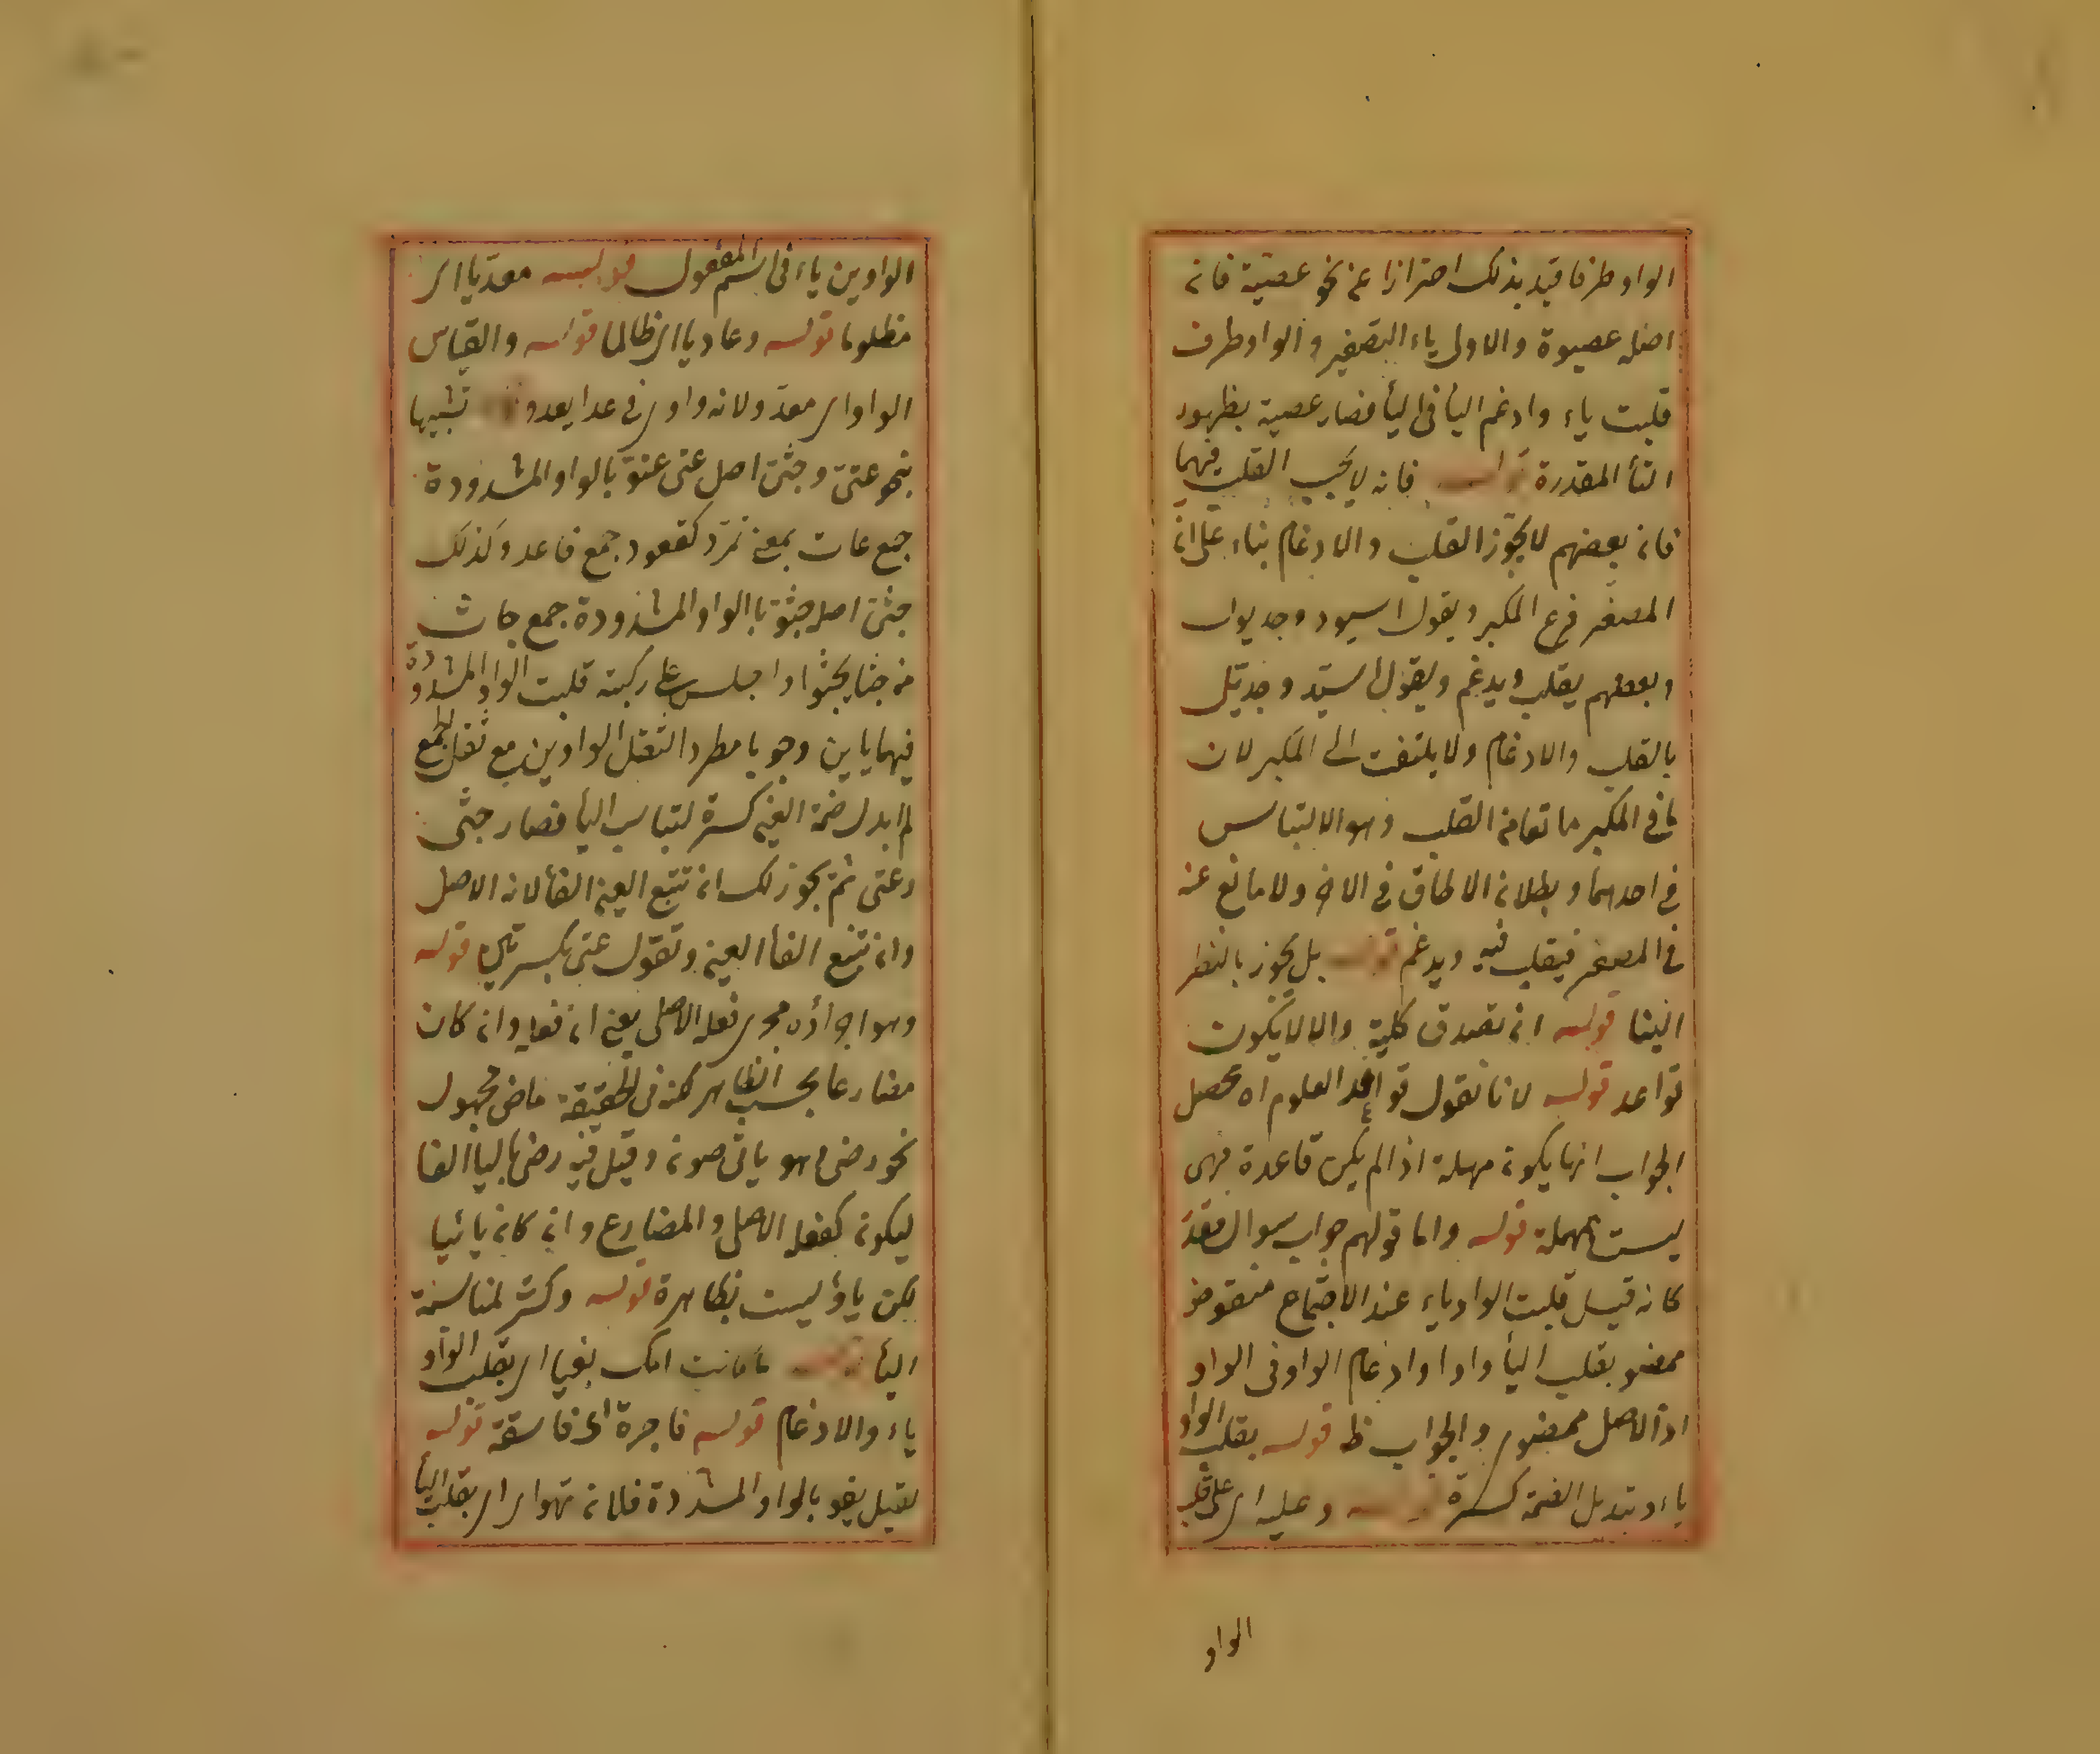 الواو طرفا قيد بذلك احترازا عن نحو عصيّة فانه
اصله عصيوة والاولى ياء التصغير والواو طرف
قلبت ياء وادغم اليأ فى اليأ فصار عصية بظهور
التأ المقدرة قوله فانه لا يجب القلب فيهما
فان بعضهم لا يجوز القلب والادغام بناء على انّ
المصغر فرع المكبر ويقول اسيود وجديول
وبعضهم يقلب ويدغم ويقول اسيّد وجديّل
بالقلب والادغام ولا يلتفت الى المكبر لان
فى المكبر مانعا من القلب وهو الالتباس
فى احدهما وبطلان الالحاق فى الاخر ولا مانع عنه
فى المصغر فيقلب فيه ويدغم قوله بل يجوز بالنظر
الينا قوله ان تصدق كلية والا لا يكون
قواعد قوله لانا نقول قواعد العلوم اه محصل
الجواب انها يكون مهملة اذا لم يكن قاعدة فهى
ليست بمهملة قوله واما قولهم جواب سوال مقدّ
كانه قيل قلبت الواو ياء عند الاجتماع منقوض
بمضو بقلب اليأ واوا وادغام الواو فى الواو
اذ الاصل ممضوى والجواب ظ قوله بقلب الواو
ياء وتبديل الضمة كسرة قوله وعليه اى على قلب
الواو
الواوين ياء فى اسم المفعول قوله معديّا اى
مظلوما قوله وعاديا اى ظالما قوله والقياس
الواو اى معدوّ لانه واوى فى عدا يعدو قوله تشبيها
بنحو عتىّ وجثىّ اصل عتى عتوّ بالواو المشدودة
جمع عات بمعنى تمرّد كقعود جمع قاعد وكذلك
جثىّ اصله جثوّ باالواو المشدودة جمع جاث
من جثا يجثوا اذا جلس على ركبته قلبت الواو المشدودة
فيهما يايين وجوبا مطردا لثقل الواوين مع ثقل الجمع
ثم ابدل ضمة العين كسرة لتناسب اليأ فصار جثى
وعتى ثم يجوز لك ان تتبع العين الفأ لانه الاصل
وان تتبع الفأ العين وتقول عتى بكسرتين قوله
وهو اجراؤه مجرى فعله الاصلى يعنى ان فعله وان كان
مضارعا بحسب الظاهر لكنه فى الحقيقة ماضى مجهول
نحو رضى وهو ياتى صونه وقيل فيه رضى باليأ الفا
ليكون كفعله الاصلى والمضارع وان كان يائيا
لكن ياؤ ليست بظاهرة قوله وكسر لمناسبة
اليأ قوله ما كانت امك بغيا اى بقلب الواو
ياء والادغام قوله فاجرة اى فاسقة قوله
لقيل بغو بالواو المشددة فلانه نهوا اى بقلب اليأ